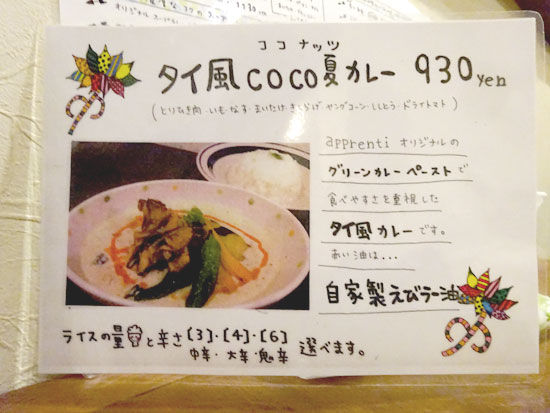 ココナッツ
タイ風coco夏カレー 930yen
(とりひき肉・いも・なす・まいたけ・きくらげ・ヤングコーン・ししとう・ドライトマト)
apprenti オリジナルの
グリーンカレーペーストで
食べやすさを重視した
タイ風カレーです。
あい油は...
自家製えびラー油
ライスの量と辛さ[3]・[4]・[6]
中辛・大辛・鬼辛 選べます。